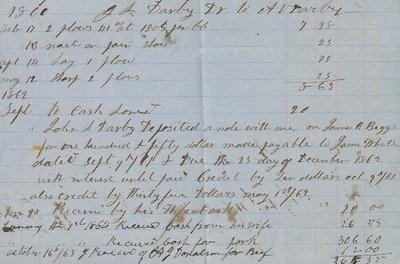 1860 J L Darby Dr to A Darby
Feb 17 2 plows 41 at 18 cts per lb 7 38
13 one pair 25
apl 14 Lay 1 plow 75
may 12 Sharp 2 plows 25
8 63
1862
Sept. to Cash Loned 20
" John L Darby Deposited a note with me on James H Beggs
for one hundred & fifty dollar made payable to
dated Sept 9th 61 & Due the 25 day of December 1862
with interest until paid Credit by Ten dollars oct 9th 61
also credit by thirty five Dollars may 1st 62.
Received by his 20 00
1st 1864 Received Cash from his wife 26 75
" " Received Cash for pork 306 60
october 16th 63 Received of for Beef 2 00